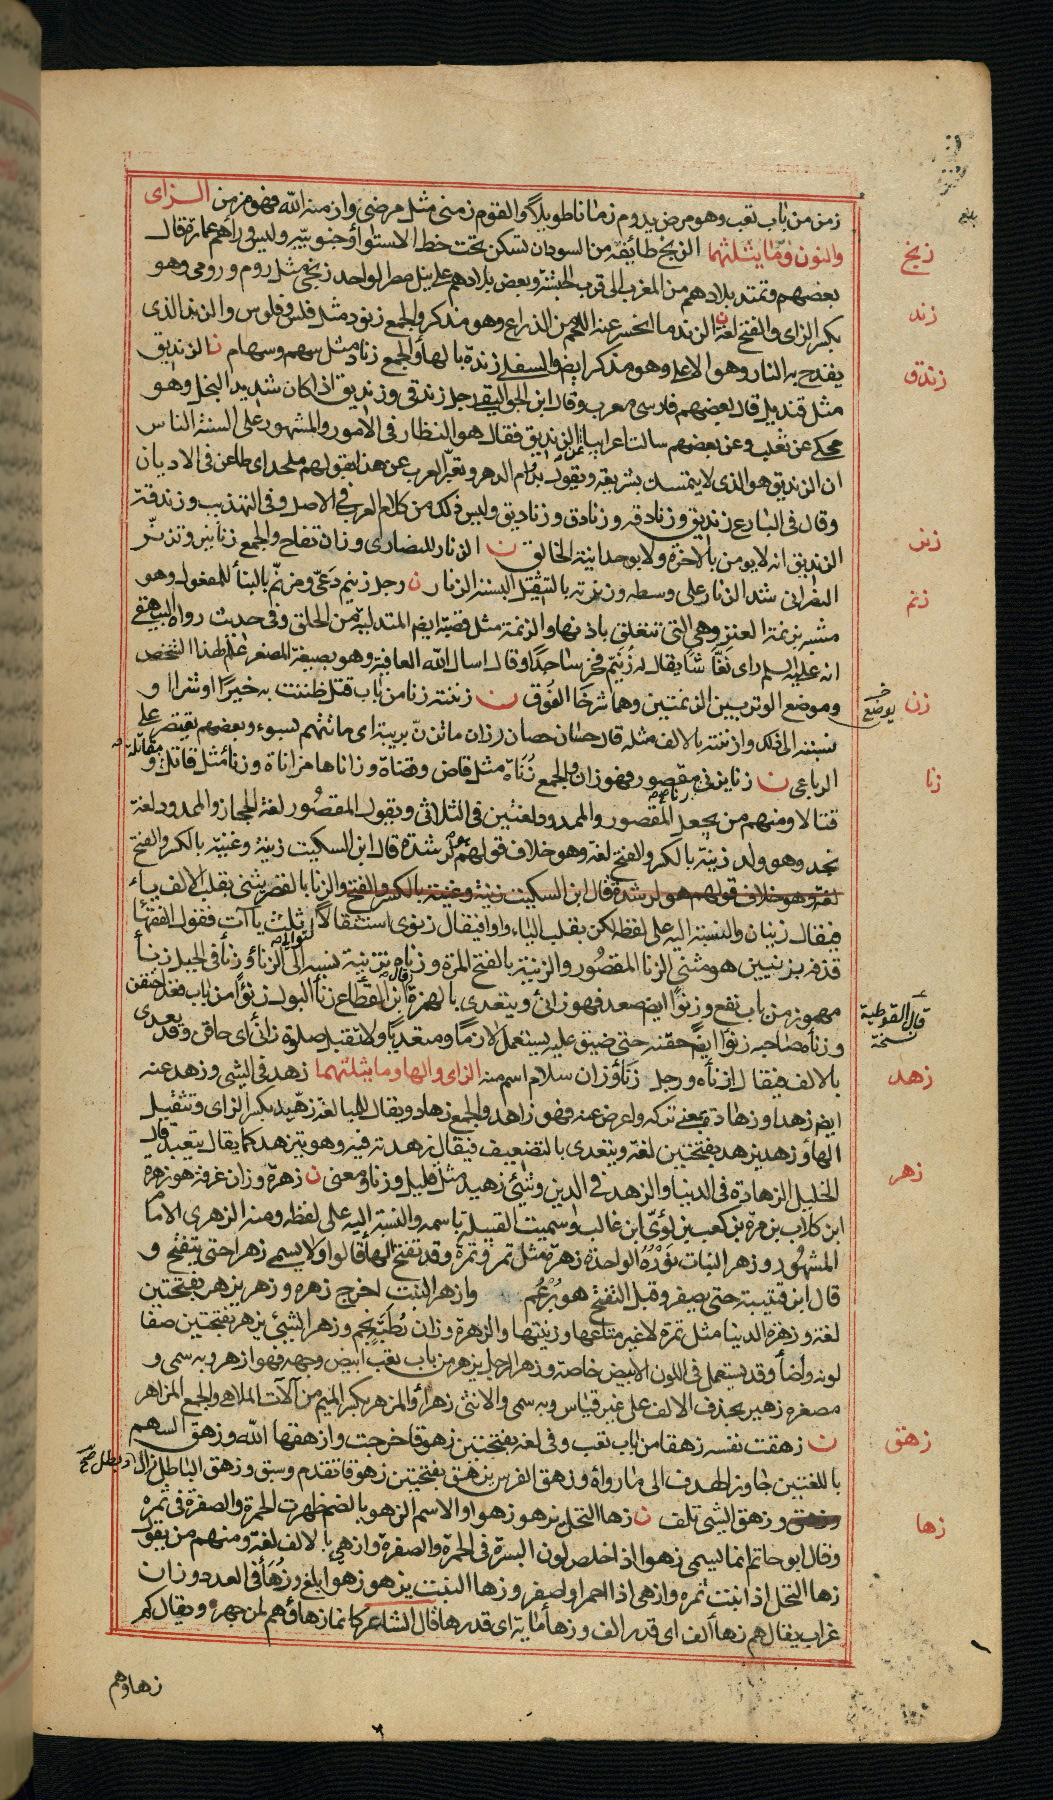 زمن من باب تعب وهو مرض يدوم زمانا طويلا والقوم زمنى مثل مرضى وازمنه الله فهو مزمن الزاى
والنون وما يثلثهما الزنج طائفة من السودان تسكن تحت خط الاستوا وجنوبيه وليس وراهم عمارة قال
بعضهم وتمتد بلادهم من المغرب الى قرب الحبشة وبعض بلادهم على نيل مصر الواحد زنجى مثل روم ورومى وهو
بكسر الزاى والفتح لغة ن الزند ما انحسر عنه اللحم من الذراع وهو مذكر والجمع زنود مثل فلس وفلوس والزند الذى
يقدح به النار وهو الاعلى وهو مذكر ايض والسفلى زندة بالها والجمع زناد مثل سهم وسهام ن الزنديق
مثل قنديل قال بعضهم فارسى معرب وقال ابن الجواليقى رجل زندقى وزنديق اذا كان شديد البخل وهو
محكى عن ثعلب وعن بعضهم سالت اعرابيا عن الزنديق فقال هو النظار فى الامور والمشهور على السنة الناس
ان الزنديق هو الذى لا يتمسك بشريعة ويقول بدوام الدهر وتعبر العرب عن هذا بقولهم ملحد اى طاعن فى الاديان
وقال فى البارع زنديق وزنادقه وزنادق وزناديق وليس ذلك من كلام العرب فى الاصل وفى التهذيب وزندقة
الزنديق انه لا يومن بالاخرة ولا بوحدانية الخالق ن الزنار للنصارى وزان تفاح والجمع زنانير وتزنر
النصرانى شد الزنار على وسطه وزنرته بالتثقيل البسته الزنار ن رجل زنيم دعى ومزنم بالبنأ للمفعول وهو
مشبه بزنمة العنز وهى التى تتعلق باذنها والزنمة مثل قصبة ايض المتدلية من الحلق وفى حديث رواه البيهقى
انه عليه السلم راى نغاشا يقال له زنيم فخر ساجدا وقال اسال الله العافية وهو بصيغة المصغر علم لهذا الشخص
وموضع الوتر بين الزنمتين وهما شرخا الفوق ن زننته زنا من باب قتل ظننت به خيرا او شرا او
نسبته الى ذلك وازننته بالالف مثله قال حسان حصان رزان ما تزن بريبة اى ما تتهم بسوء وبعضهم يقتصر على
الرباعى ن زنا يزنى مقصور فهو زان والجمع زناة مثل قاض وقضاة وزاناها مزاناة وزناء مثل قاتل مقاتلة و
قتالا ومنهم من يجعل المقصور والممدود لغتين فى الثلاثى ويقول المقصور لغة الحجاز والممدود لغة
نجد وهو ولد زنية بالكسر والفتح لغة وهو خلاف قولهم هو لرشدة قال ابن السكيت زنية وغية بالكسر والفتح
لغة وهو خلاف قولهم هو لرشدة قال ابن السكيت زنية وغية بالكسر والفتح والزنا بالقصر يثنى بقلب الالف ياء
فيقال زنيان والنسبة اليه على لفظه لكن بقلب الياء واوا فيقال زنوى استثقالا لتوالى ثلث ياآت فقول الفقها
قذفه بزنيين هو مثنى الزنا المقصور والزنية بالفتح المرة وزناه تزنية نسبه الى الزنا وزنأ فى الجبل زنأ
مهموز من باب نفع وزنوا ايض صعد فهو زانئ ويتعدى بالهمزة قال ابن القطاع زنأ البول زنوا من باب قعد احتقن
وزناه صاحبه زنوا ايض حقنه حتى ضيق عليه يستعمل لازما ومتعديا ولا تقبل صلوة زانئ اى حاقن وقد يعدى
بالالف فيقال ازناه ورجل زناء وزان سلام اسم منه الزاى والها وما يثلثهما زهد فى الشى وزهد عنه
ايض زهدا وزهادة بمعنى تركه واعرض عنه فهو زاهد والجمع زهاد ويقال للمبالغة زهيد بكسر الزاى وتثقيل
الها وزهد يزهد بفتحتين لغة ويتعدى بالتضعيف فيقال زهدته فيه وهو يتزهد كما يقال يتعبد قال
الخليل الزهادة فى الدنيا والزهد فى الدين وشئ زهيد مثل قليل وزنا ومعنى ن زهرة وزان غرفة هو زهرة
ابن كلاب بن مرة بن كعب بن لؤى ابن غالب وسميت القبيلة باسمه والنسبة اليه على لفظه ومنه الزهرى الامام
المشهور وزهر النبات نوره الواحدة زهرة مثل تمر وتمرة وقد تفتح الها قالوا ولا يسمى زهرا حتى يتفتح و
قال ابن قتيبة حتى يصفر وقبل التفتح هو برعم وازهر النبت اخرج زهره وزهر يزهر بفتحتين
لغة وزهرة الدنيا مثل تمرة لا غير متاعها وزينتها والزهرة وزان رطبة نجم وزهر الشئ يزهر بفتحتين صفا
لونه واضأ وقد يستعمل فى اللون الابيض خاصة وزهر الرجل يزهر من باب تعب ابيض وجهه فهو ازهر وبه سمى و
مصغره زهير بحذف الالف على غير قياس وبه سمى والانثى زهرا والمزهر بكسر الميم من آلات الملاهى والجمع المزاهر
ن زهقت نفسه زهقا من باب تعب وفى لغة بفتحتين زهوقا خرجت وازهقها الله وزهق السهم
باللغتين جاوز الهدف الى ما رواه وزهق الفرس يزهق بفتحتين زهوقا تقدم وسبق وزهق الباطل زال وبطل صح
وزهق وزهق الشى تلف ن زها النخل يزهو زهوا والاسم الزهو بالضم ظهرت الحمرة والصفرة فى ثمره
وقال ابو حاتم انما يسمى زهوا اذا خلص لون البسرة فى الحمرة والصفرة وازهى بالالف لغة ومنهم من يقول
زها النخل اذا نبت ثمره وازهى اذا احمر او اصفر وزها النبت يزهو زهوا بلغ وزها فى العدد وزان
غراب يقال هم زها ألف اى قدر الف وزها ماية اى قدرها قال الشاعر كانما زهاؤهم لمن جهر ويقال كم
زهاوهم
زنج
زند
زندق
زنر
زنم
زن
يوضع
زنا
قال القوطية
نسخة
زهد
زهر
زهق
زها